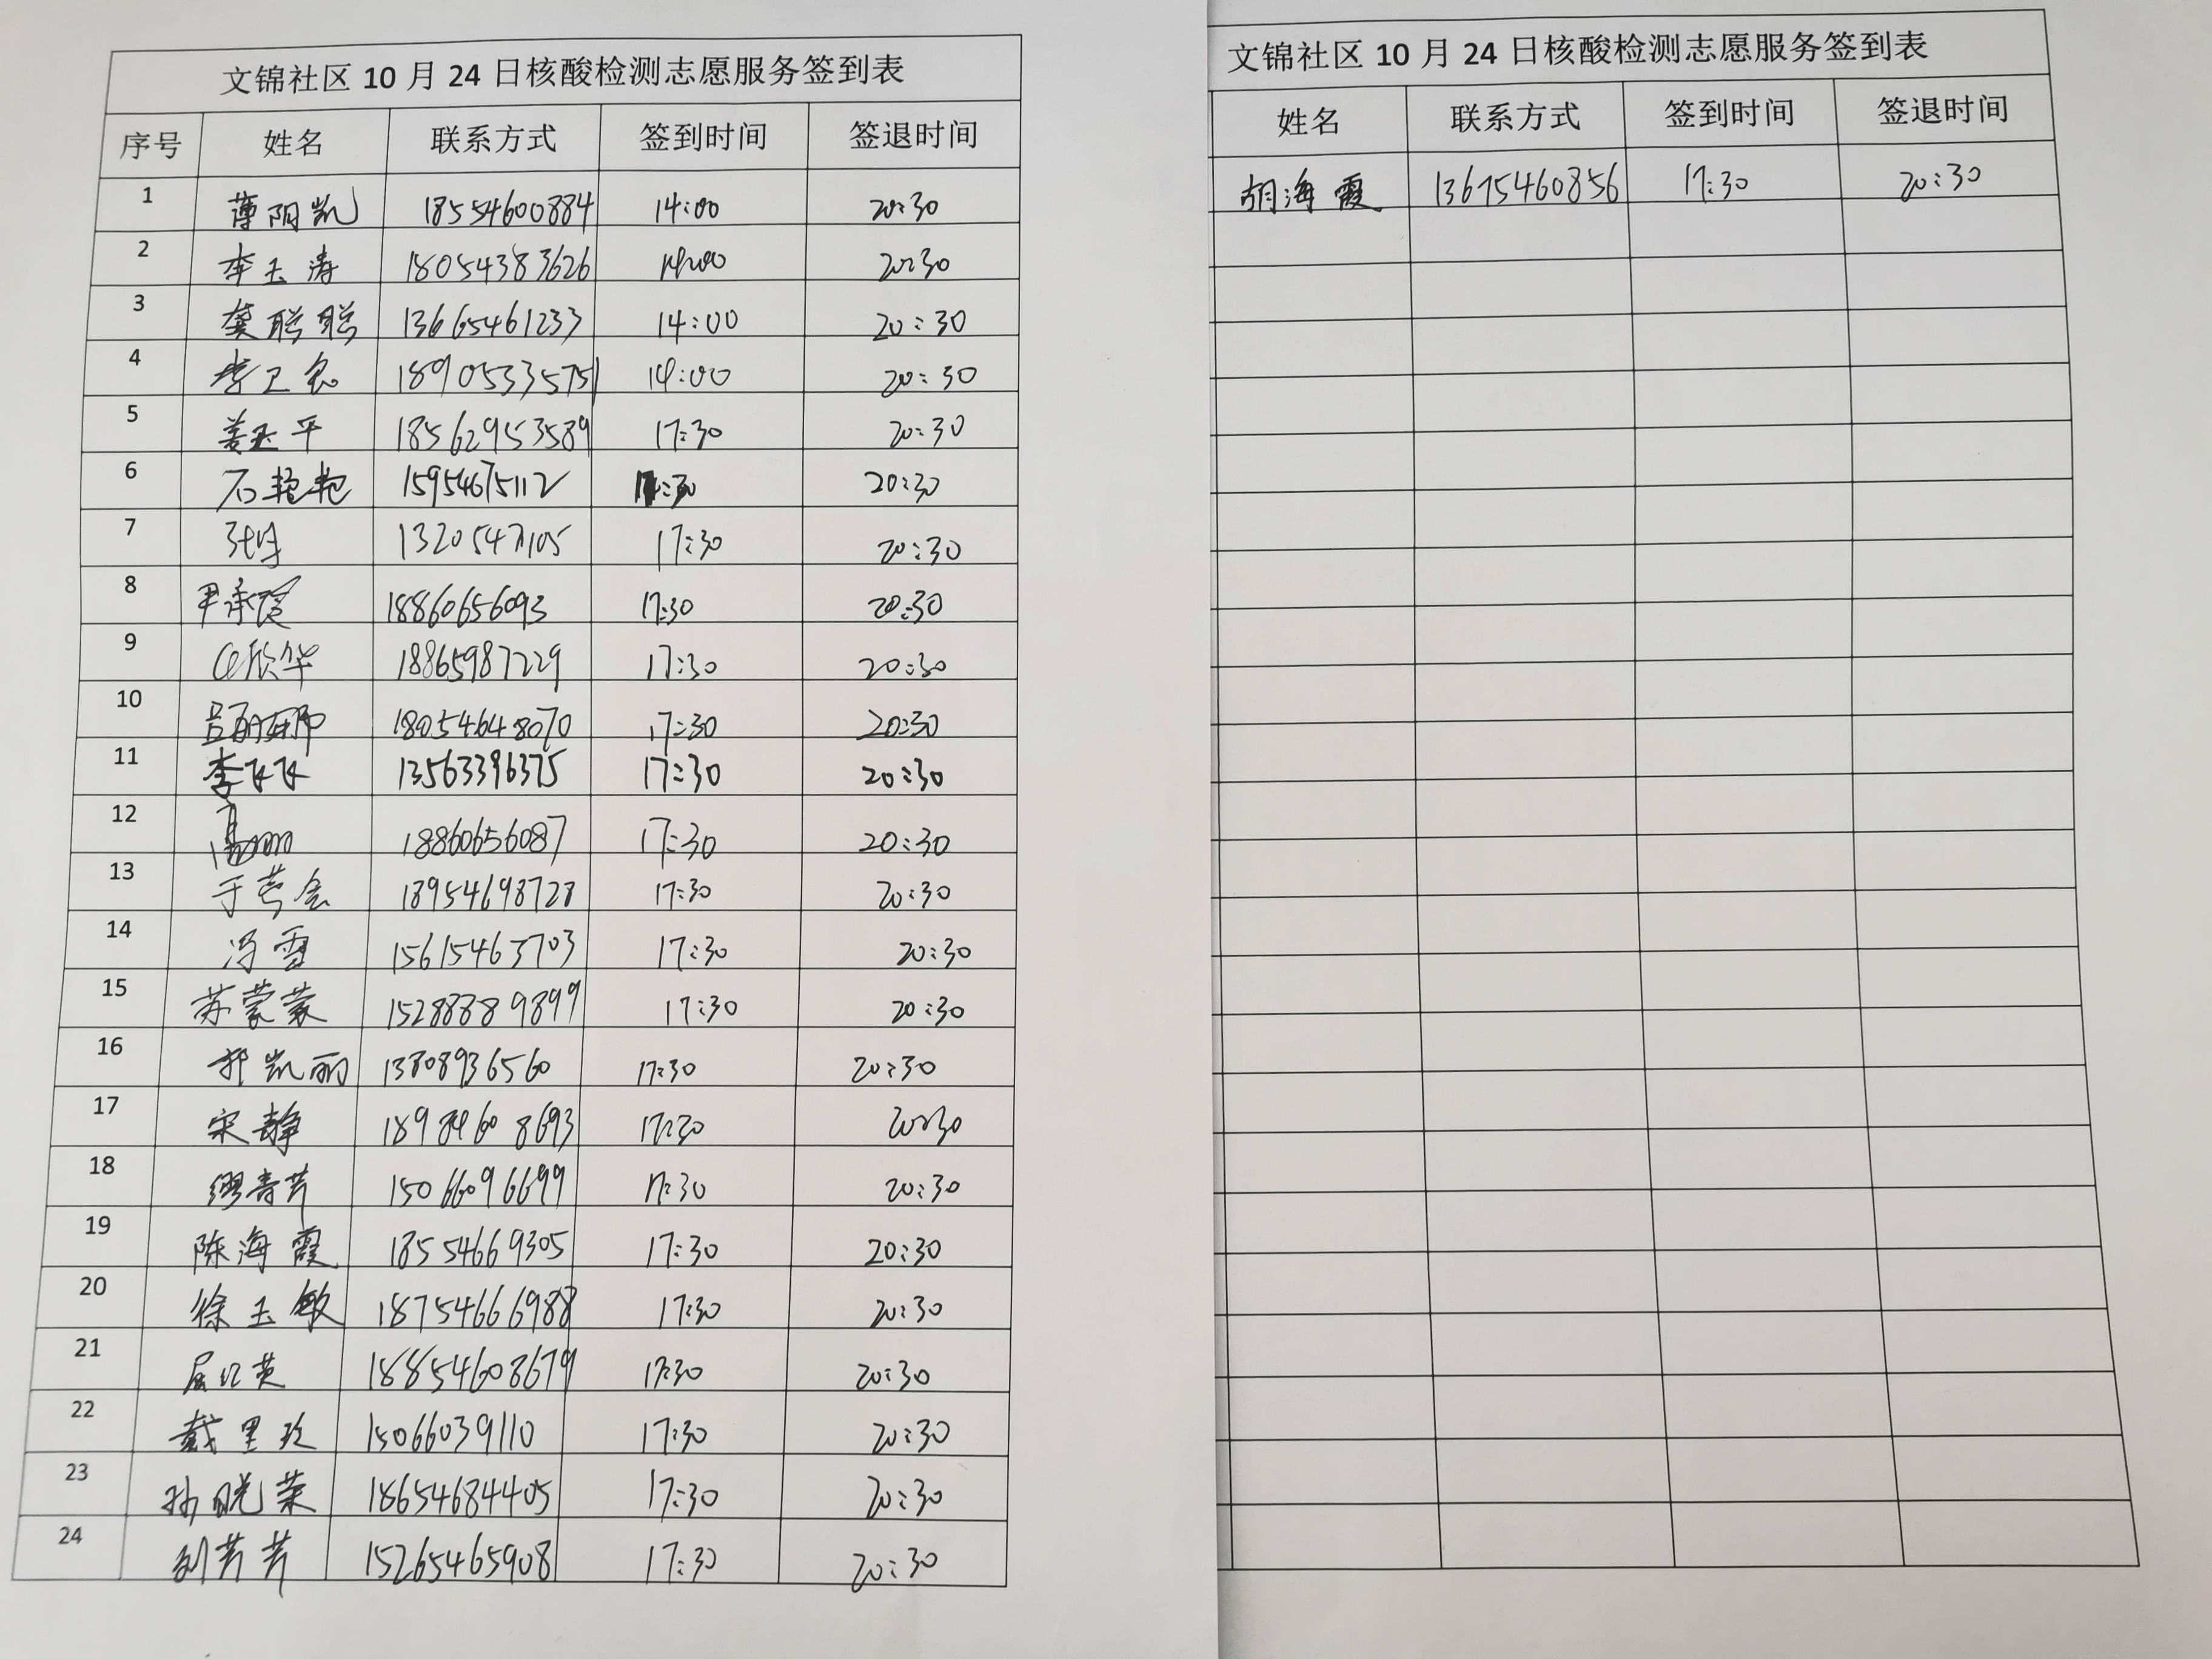 文锦社区 10 月 24 日核酸检测志愿服务签到表
序号 姓名 联系方式 签到时间 签退时间
1 薄阴凯 18554600884 14:00 20:30
2 李玉涛 18054383626 14:00 20:30
3 龚聪聪 13665461233 14:00 20:30
4 李卫 18905335751 14:00 20:30
5 姜玉平 18562953589 17:30 20:30
6 石艳艳 15954675112 17:30 20:30
7 17:30 20:30
8 尹承 18860656093 17:30 20:30
9 欣华 18865987229 17:30 20:30
10 吕丽娜 18054648070 17:30 20:30
11 李飞飞 13563396375 17:30 20:30
12 18860656087 17:30 20:30
13 于营会 18954698728 17:30 20:30
14 冯雪 15615463703 17:30 20:30
15 苏蒙蒙 15288889899 17:30 20:30
16 郑凯丽 13808936560 17:30 20:30
17 宋静 17:30 20:30
18 缪青芹 15066096699 17:30 20:30
19 陈海霞 18554669305 17:30 20:30
20 徐玉敏 18754666988 17:30 20:30
21 屈红英 18854608679 17:30 20:30
22 戴里玲 15066039110 17:30 20:30
23 孙晓荣 18654684405 17:30 20:30
24 刘芳芳 15265465908 17:30 20:30
文锦社区 10 月 24 日核酸检测志愿服务签到表
姓名 联系方式 签到时间 签退时间
胡海霞 13675460856 17:30 20:30